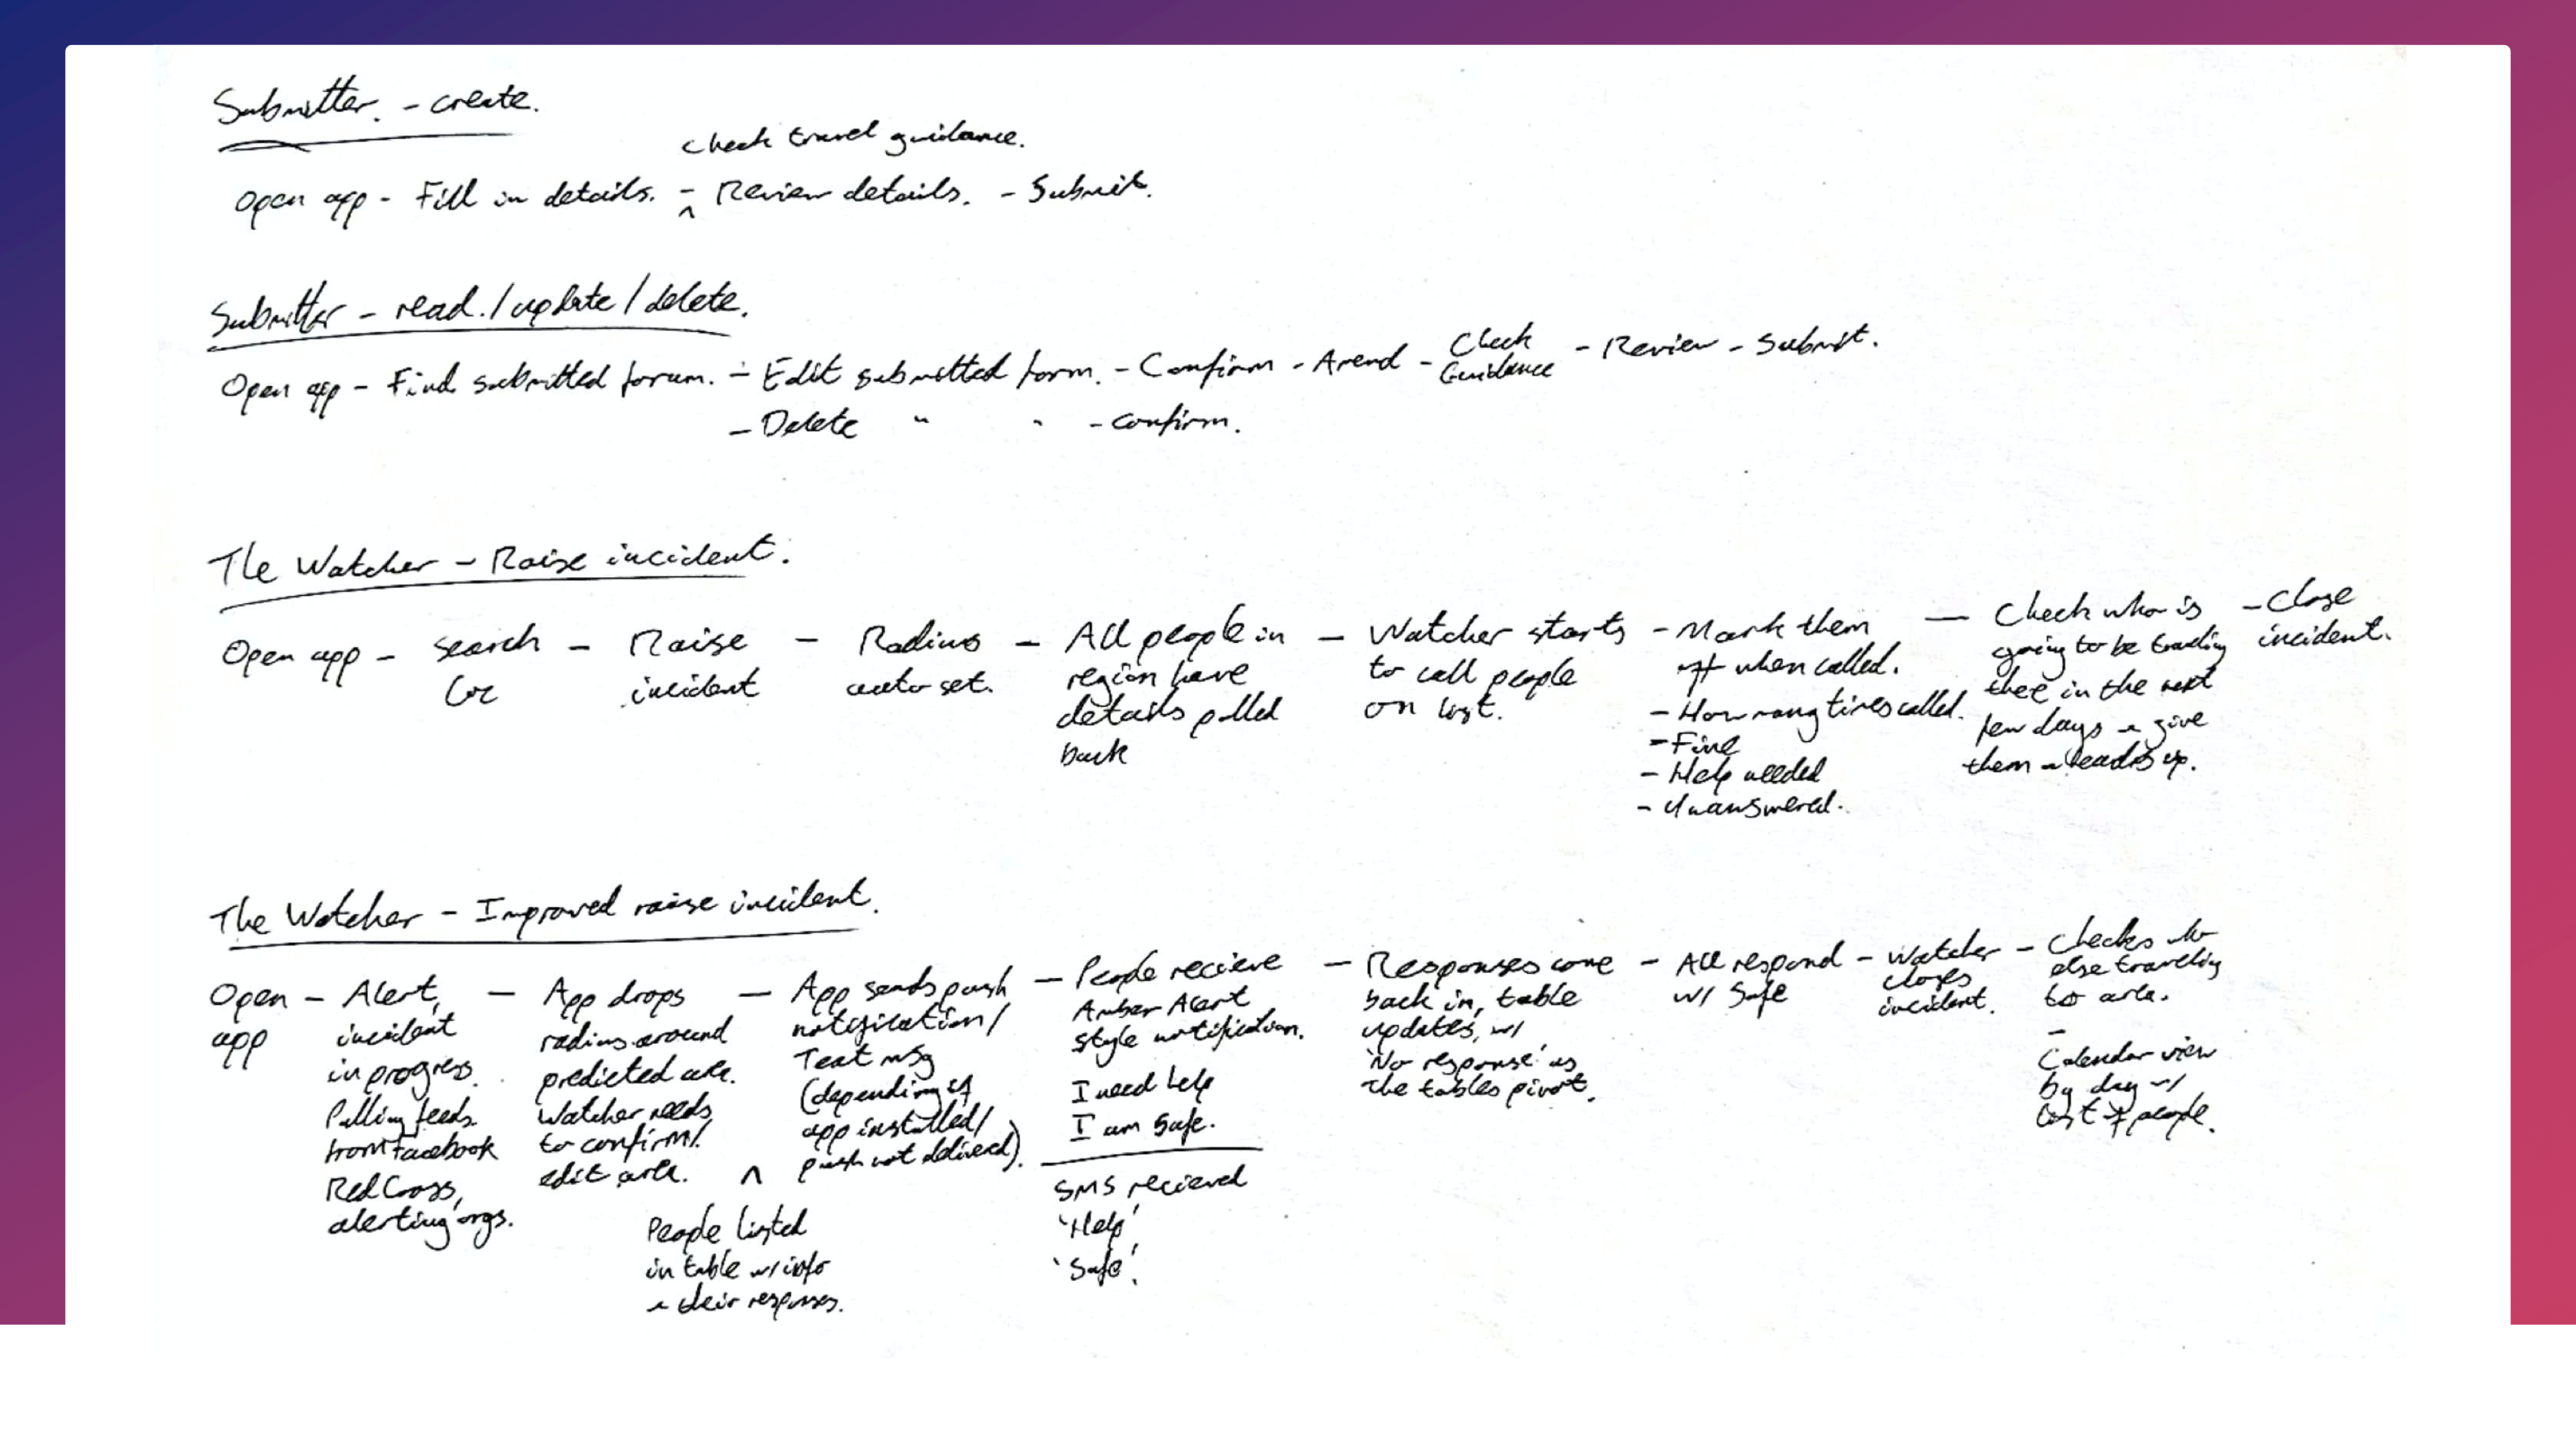 Submitter. - create.
check travel guidance.
Open app - Fill in details. - ^ Review details. - Submit.
Submitter - read. / update / delete.
Open app - Find submitted forum. - Edit submitted form. - Confirm - Amend - Check Guidance - Review - Submit.
- Delete " " - confirm.
The Watcher - Raise incident.
Open app - search loc - Raise incident - Radius auto set. - All people in
region have
details pulled
back
- Watcher starts
to call people
on list.
- Mark them
off when called.
- How many times called.
- Fine
- Help needed
- Unanswered.
- Check who is
going to be traveling
there in the next
few days + give
them a heads up.
- Close
incident.
The Watcher - Improved raise incident.
Open
app
- Alert,
incident
in progress.
Pulling feeds
from Facebook
Red Cross,
alerting orgs.
- App drops
radius around
predicted area.
Watcher needs
to confirm/
edit area.
^
People listed
in table w/ info
+ their responses.
- App sends push
notification/
Text msg
(depending if
app installed/
push not delivered).
- People recieve
Amber Alert
style notification.
I need help
I am safe.
SMS recieved
'Help'
'Safe'.
- Responses come
back in, table
updates, w/
'No response' as
the tables pivot.
- All respond
w/ Safe
- Watcher
closes
incident.
- Checks who
else traveling
to area.
-
Calendar view
by day w/
list of people.